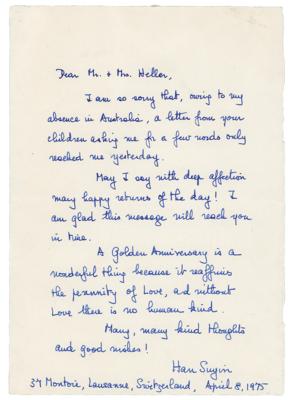 Dear Mr. + Mrs. Heller,
I am so sorry that, owing to my
absence in Australia, a letter from your
children asking me for a few words only
reached me yesterday.
May I say with deep affection
many happy returns of the day! I
am glad this message will reach you
in time.
A Golden Anniversary is a
wonderful thing because it reaffirms
the perennity of Love, and without
Love there is no human kind.
Many, many kind thoughts
and good wishes!
Han Suyin
37 Montoie, Lausanne, Switzerland, April 8, 1975